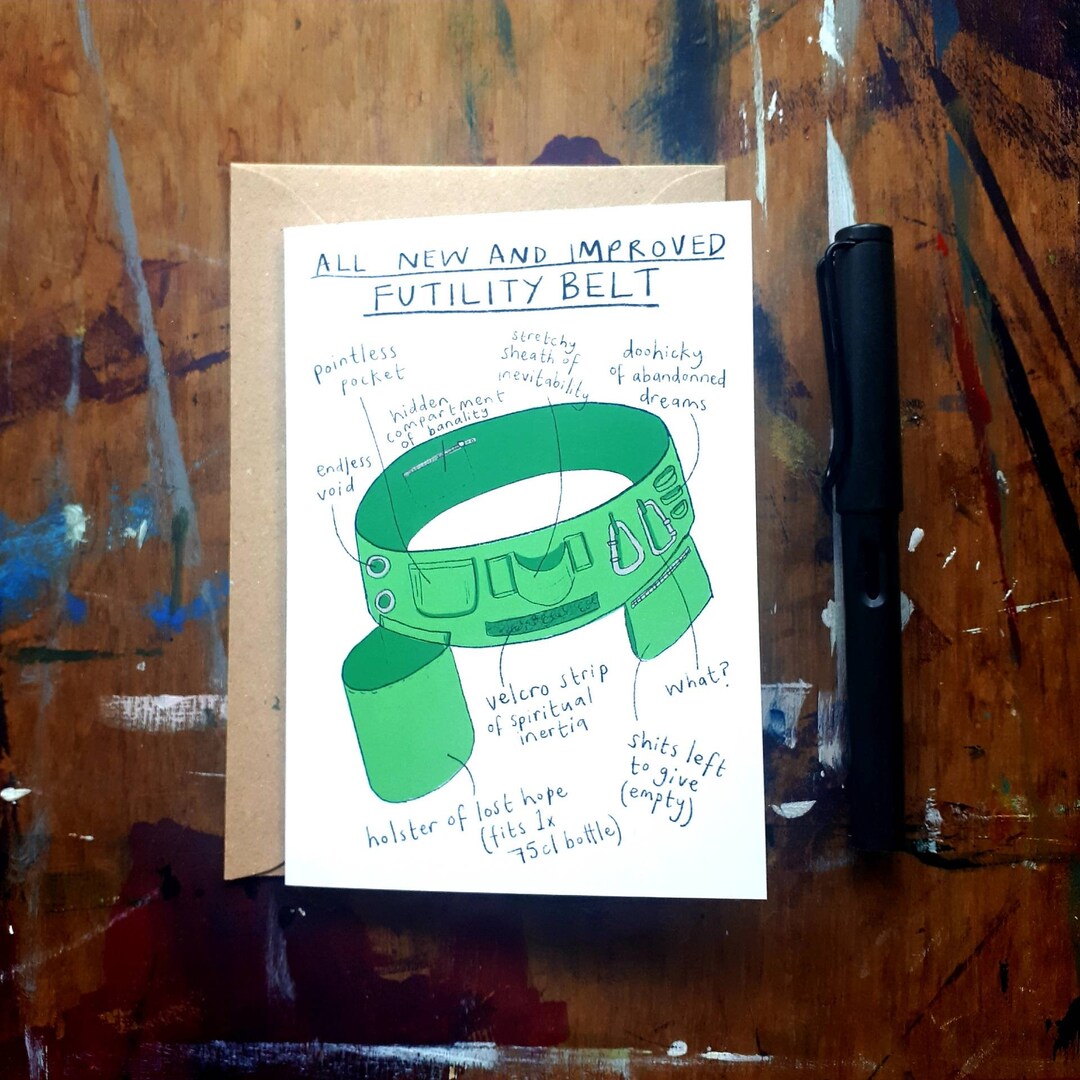 ALL NEW AND IMPROVED
FUTILITY BELT
pointless
pocket
stretchy
sheath of
inevitability
doohicky
of abandonned
dreams
hidden
compartment
of banality
endless
void
velcro strip
of spiritual
inertia
what?
shits left
to give
(empty)
holster of lost hope
(fits 1x
75cl bottle)